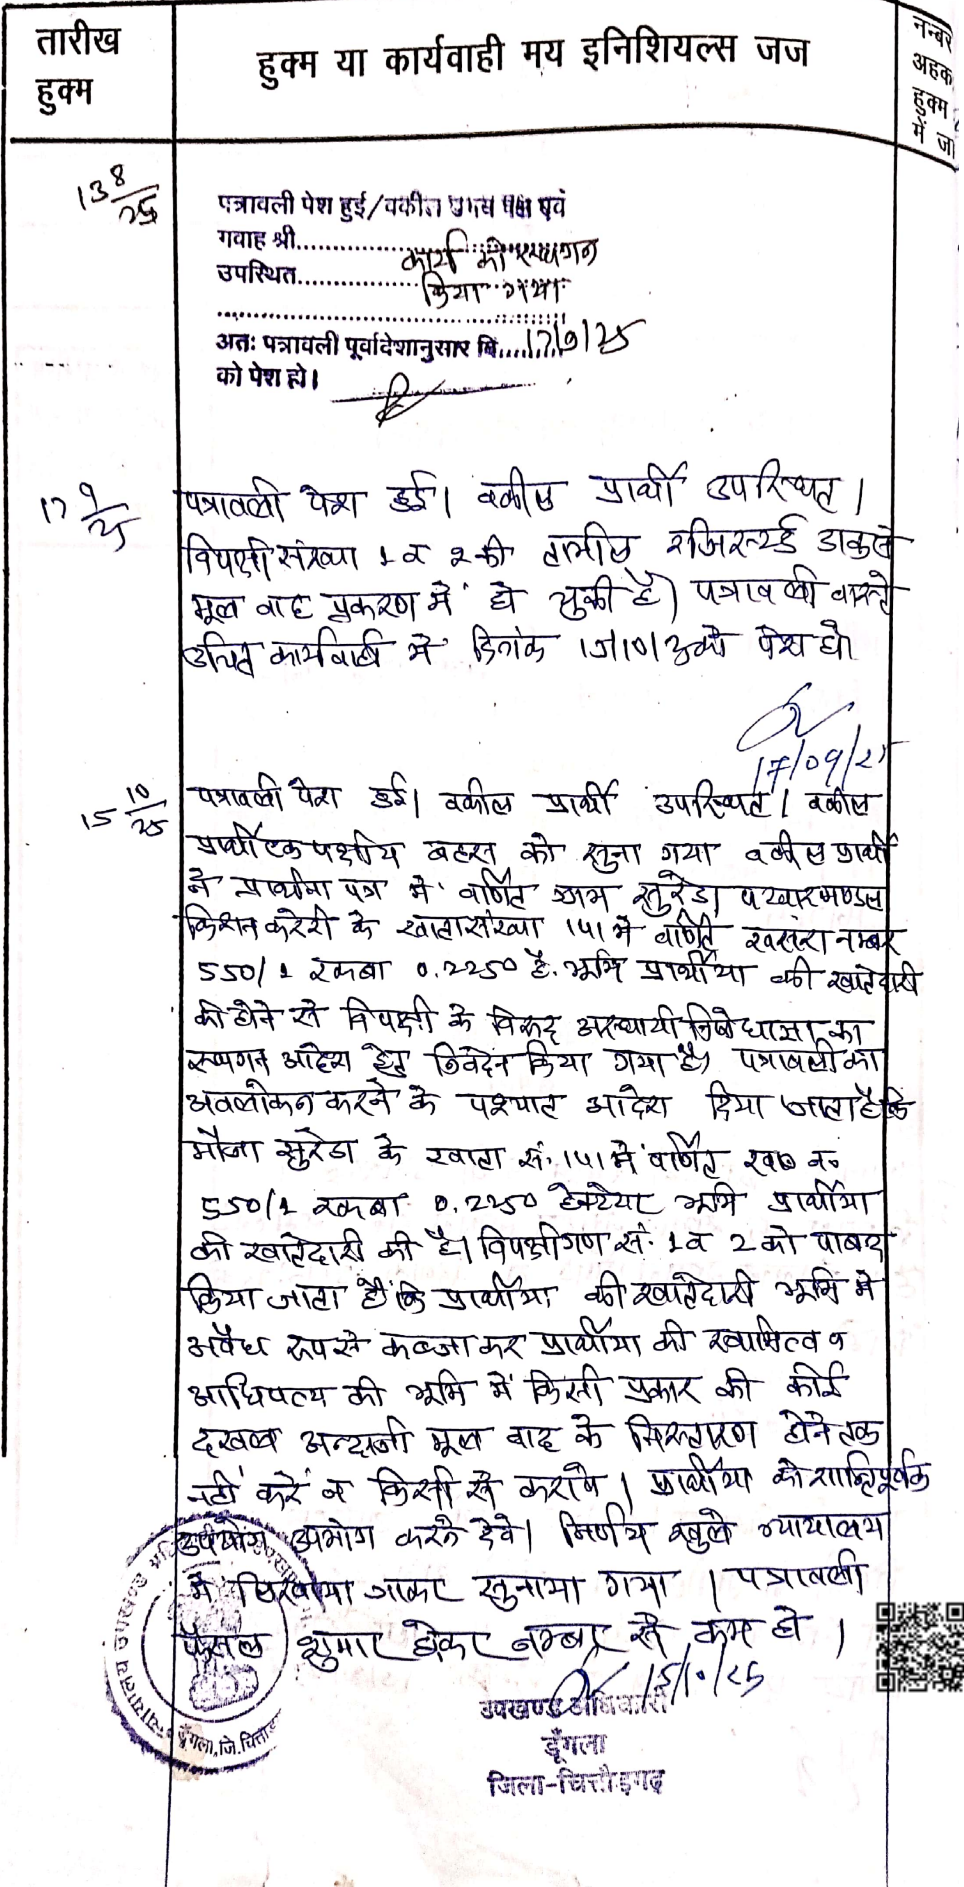 तारीख
हुक्म
हुक्म या कार्यवाही मय इनिशियल्स जज
नम्बर
अहक
हुक्म
में जा
13 8/25
पत्रावली पेश हुई/वकील उभय पक्ष एवं
गवाह श्री.......... कार्य को स्थगन
उपस्थित.......... किया गया
अतः पत्रावली पूर्वादेशानुसार दि..... 17/9/25
को पेश हो।
17 9/25
पत्रावली पेश हुई। वकील प्रार्थी उपस्थित।
विपक्षी संख्या 1 व 2 की तामील रजिस्टर्ड डाक से
मूल वाद प्रकरण में हो चुकी है। पत्रावली वास्ते
उचित कार्यवाही में दिनांक को पेश हो
17/09/25
15 10/25
पत्रावली पेश हुई। वकील प्रार्थी उपस्थित। वकील
प्रार्थी एक पक्षीय बहस को सुना गया वकील प्रार्थी
ने प्रार्थना पत्र में वर्णित ग्राम सुरेडा पटवार मण्डल
किशन करेरी के खाता संख्या 141 में वर्णित खसरा नम्बर
550/1 रकबा 0.2250 है. भूमि प्रार्थीया की खातेदारी
की होने से विपक्षी के विरूद्ध अस्थायी निषेधाज्ञा का
स्थगन आदेश हेतु निवेदन किया गया है। पत्रावली का
अवलोकन करने के पश्चात आदेश दिया जाता है कि
मौजा सुरेडा के खाता सं. 141 में वर्णित ख० न०
550/1 रकबा 0.2250 हेक्टेयर भूमि प्रार्थीया
की खातेदारी की है। विपक्षीगण सं. 1 व 2 को पाबन्द
किया जाता है कि प्रार्थीया की खातेदारी भूमि में
अवैध रूप से कब्जा कर प्रार्थीया की स्वामित्व व
आधिपत्य की भूमि में किसी प्रकार की कोई
दखल अन्दाजी मूल वाद के निस्तारण होने तक
नहीं करें न किसी से करावे। प्रार्थीया को शान्तिपूर्वक
उपयोग उपभोग करने देवे। निर्णय खुले न्यायालय
में लिखवाया जाकर सुनाया गया। पत्रावली
फैसल शुमार होकर नम्बर से कम हो।
15/10/25
उपखण्ड अधिकारी
डूँगला
जिला-चित्तौड़गढ़
न्यायालय उपखण्ड
डूँगला, जि. चित्तौ